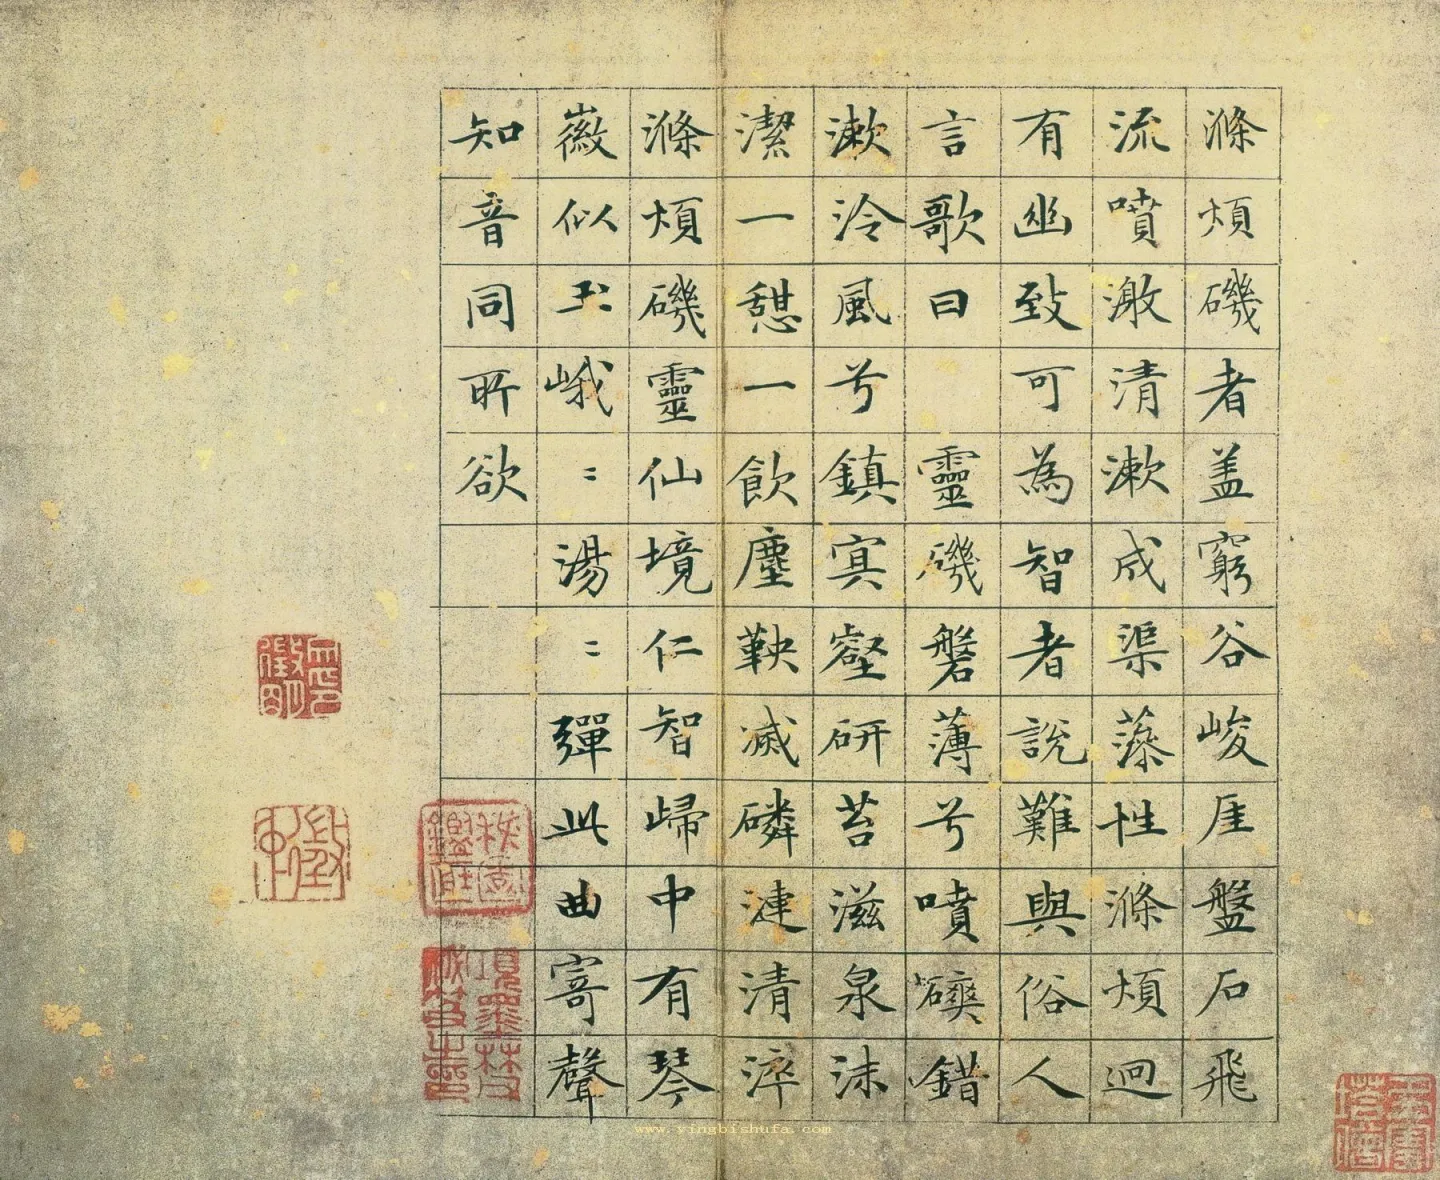 滌煩磯者盖窮谷峻厓盤石飛
流噴激清漱成渠藻性滌煩迥
有幽致可為智者說難與俗人
言歌曰 靈磯磐薄兮噴磢錯
漱泠風兮鎮冥壑研苔滋泉沫
潔一憩一飲塵鞅滅磷漣清淬
滌煩磯靈仙境仁智歸中有琴
徽似玉峨〻湯〻彈此曲寄聲
知音同所欲
項墨林父
秘笈之印
www.yingbishufa.com